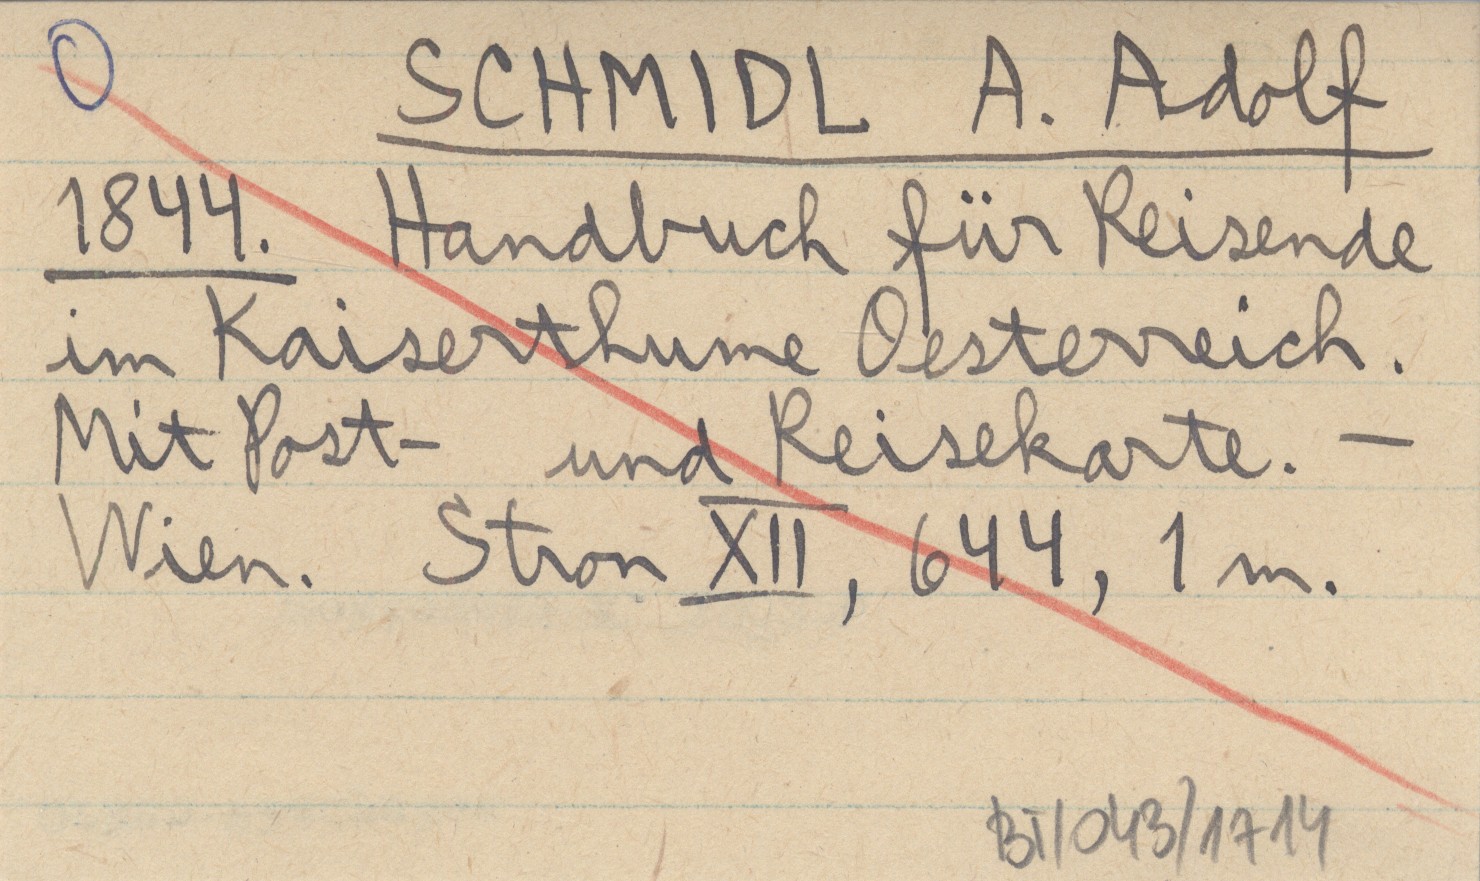 SCHMIDL A. Adolf
1844. Handbuch für Reisende
im Kaiserthume Oesterreich.
Mit Post- und Reisekarte. —
Wien. Stron XII, 644, 1 m.
BT/043/1714